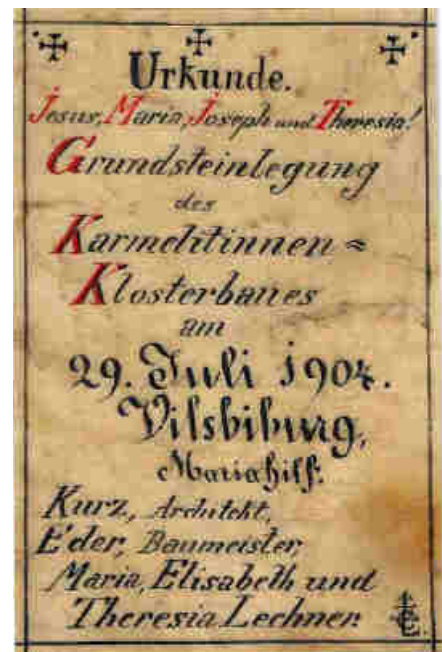 Urkunde.
Jesus, Maria, Joseph und Theresia!
Grundsteinlegung
des
Karmelitinnen=
Klosterbaues
am
29. Juli 1904.
Vilsbiburg,
Mariahilf.
Kurz, Architekt,
Eder, Baumeister,
Maria, Elisabeth und
Theresia Lechner.